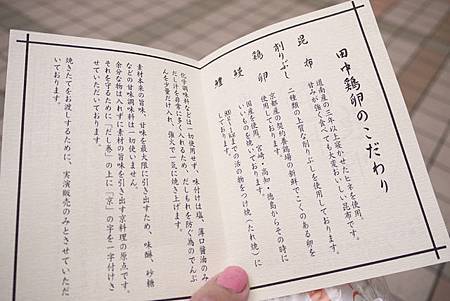 田中鶏卵のこだわり
昆布
道南産の三年以上寝かせたヒネを使用。
甘みが強く食べても大変おいしい昆布です。
削りぶし
二種類の上質な削りぶしを使用しております。
鶏卵
京都産の契約養鶏場の新鮮でこくのある卵を
使用しております。
鰻
国産を使用。宮崎・高知・徳島からその時に
いいものを焼いております。
鱧
までの活の物をつけ焼(たれ焼)に
しております。
化学調味料などは一切使用せず、味付けは塩、薄口醤油のみ
だし汁を非常に多く入れるため、だしもれを防ぐ為のでんぷ
んを少量だけ入れ、強火で一気に焼き上げます。
素材本来の旨味、甘味を最大限に引き出すため、味醂、砂糖
などの甘味調味料は一切使いません。
余分な物は入れずに素材の旨味を引き出す京料理の原点です。
それを守るために「だし巻」の上に「京」の字を一字付けさ
せていただいております。
焼きたてをお渡しするために、実演販売のみとさせていただ
いております。